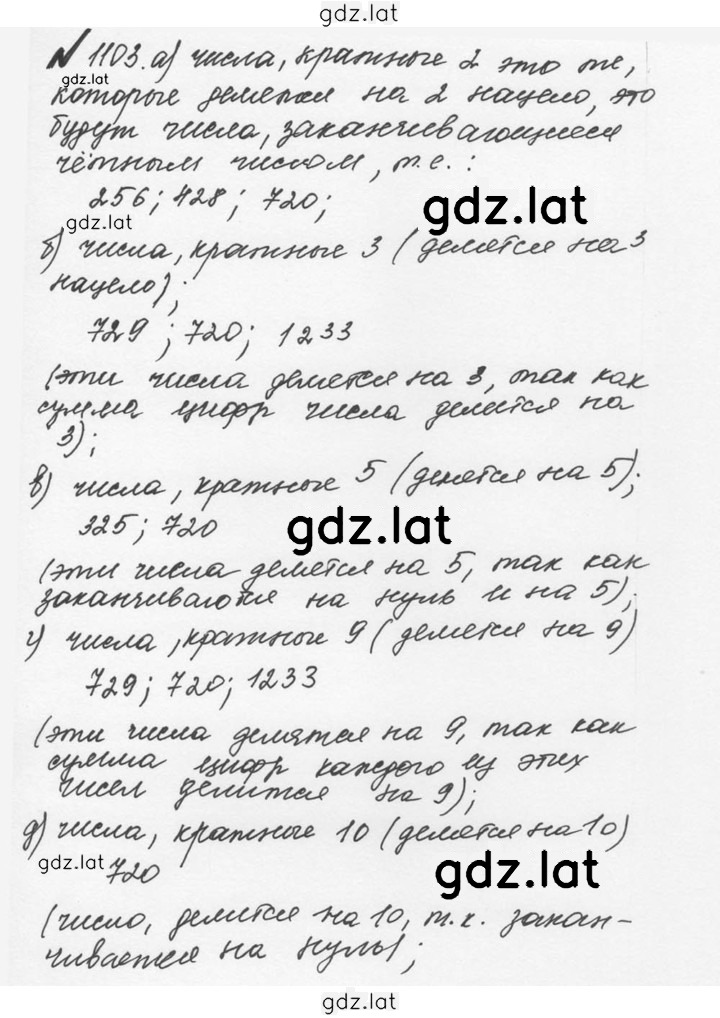 gdz.lat
№ 1103. а) числа, кратные 2 это те,
gdz.lat
которые делятся на 2 нацело, это
будут числа, заканчивающиеся
чётным числом, т.е.:
256; 428; 720;
gdz.lat
gdz.lat
б) числа, кратные 3 (делятся на 3
нацело);
729; 720; 1233
(эти числа делятся на 3, так как
сумма цифр числа делится на
3);
в) числа, кратные 5 (делятся на 5);
325; 720
gdz.lat
(эти числа делятся на 5, так как
заканчиваются на нуль и на 5);
г) числа, кратные 9 (делятся на 9)
729; 720; 1233
(эти числа делятся на 9, так как
сумма цифр каждого из этих
чисел делится на 9);
д) числа, кратные 10 (делятся на 10)
gdz.lat
720
gdz.lat
(число, делится на 10, т.к. закан-
чивается на нуль);
gdz.lat